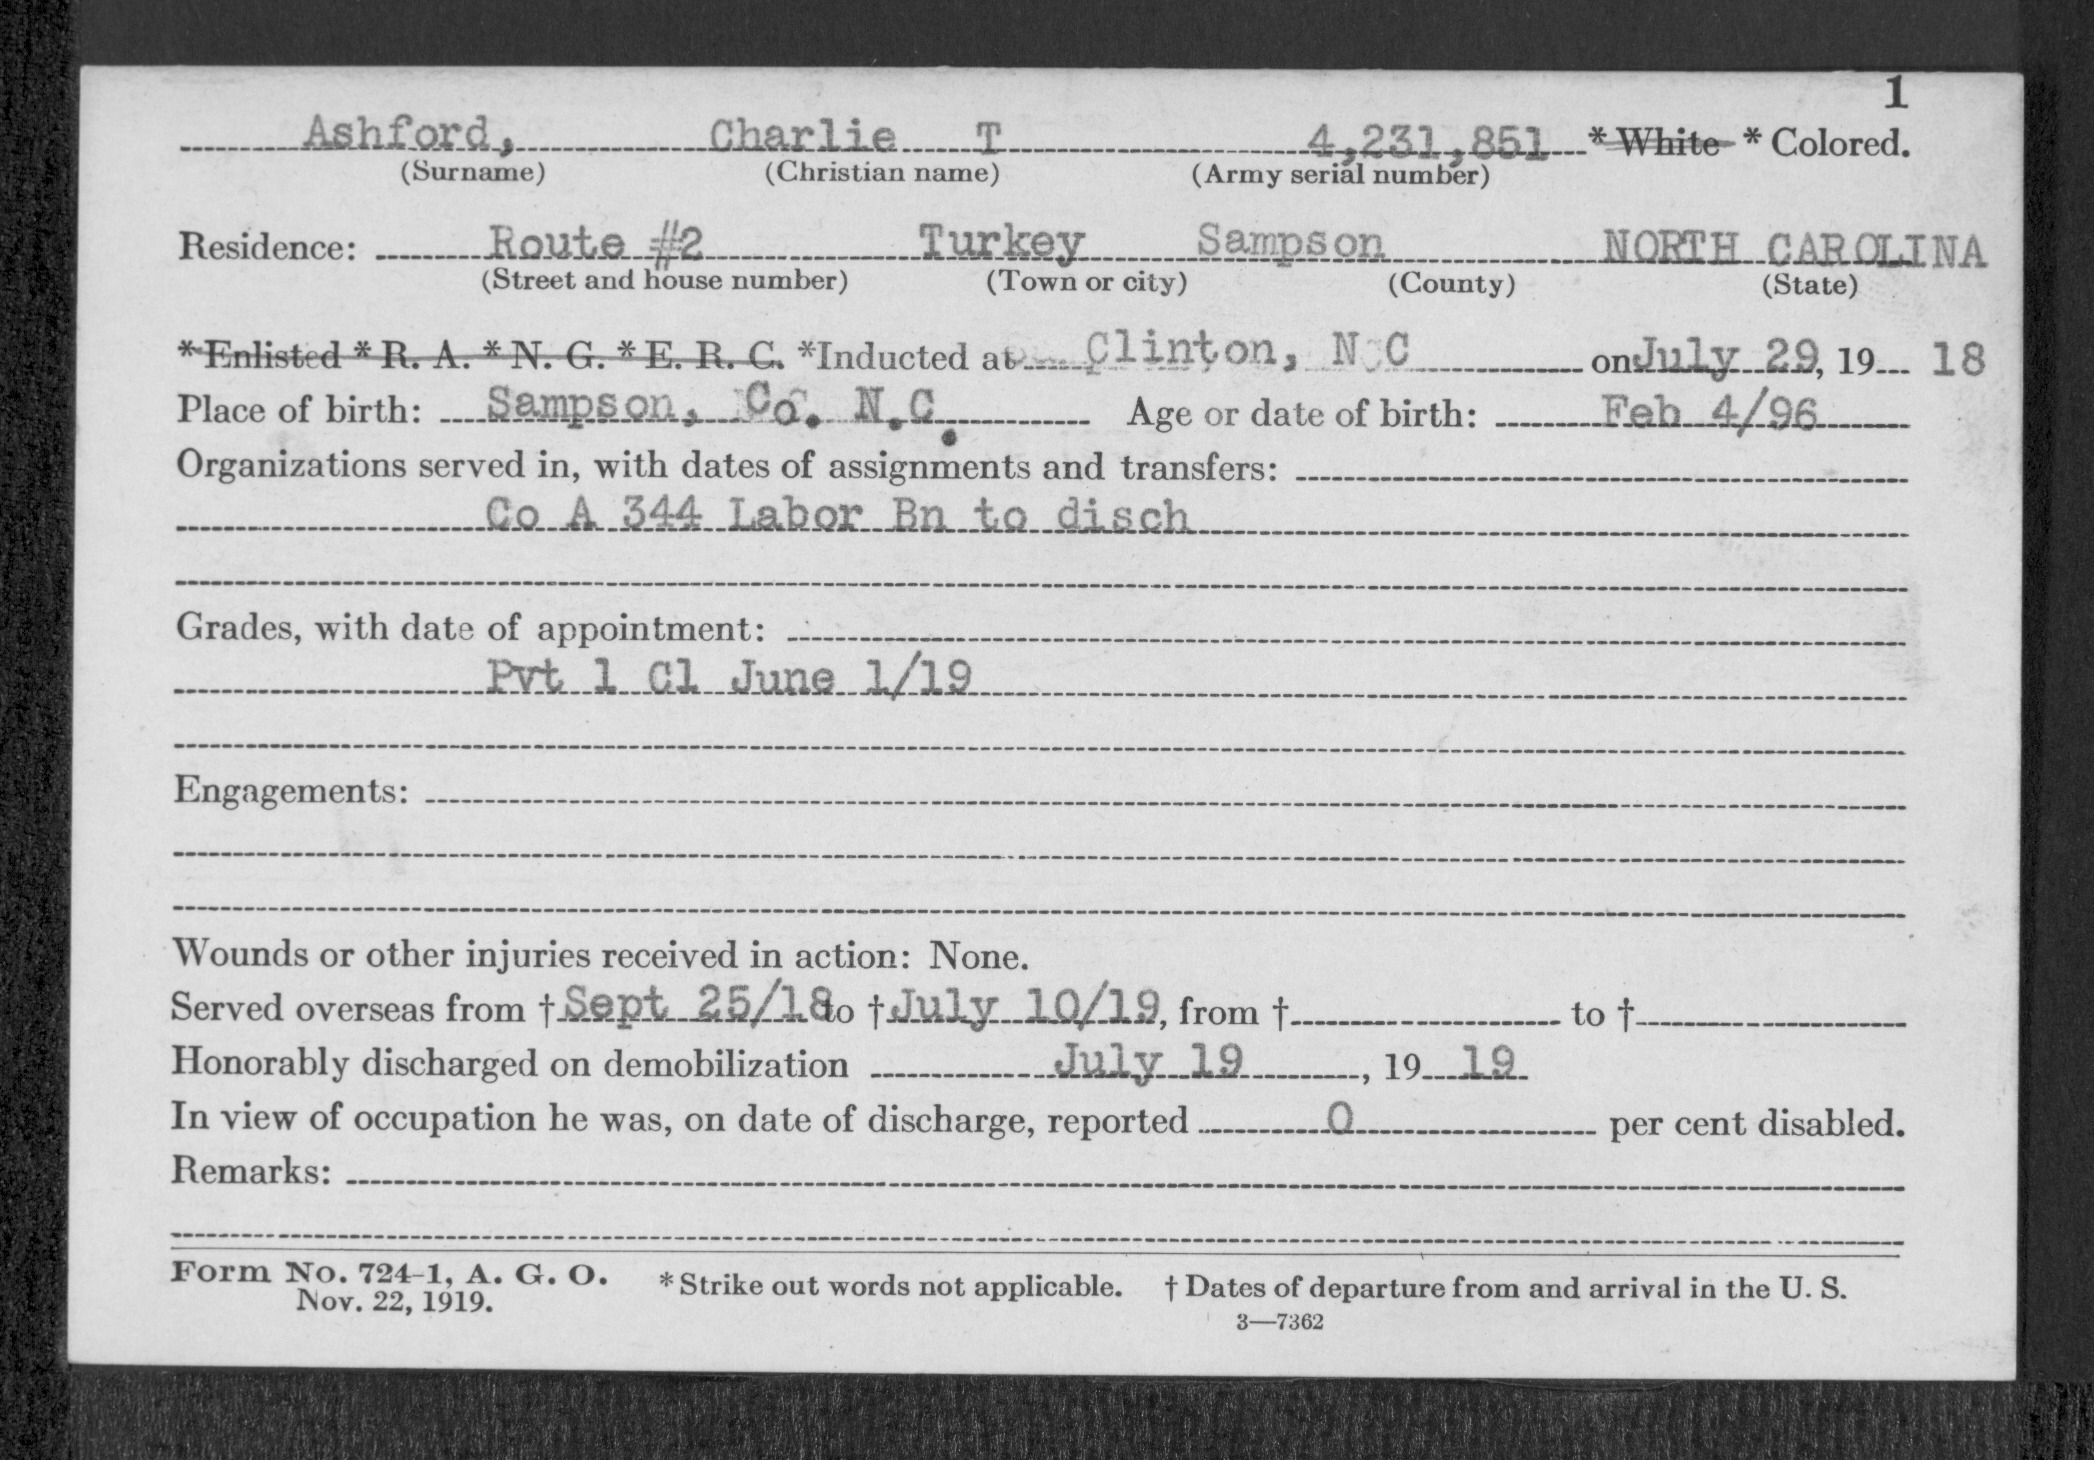 1
Ashford, Charlie T 4,231,851 * White * Colored.
(Surname) (Christian name) (Army serial number)
Residence: Route #2 Turkey Sampson NORTH CAROLINA
(Street and house number) (Town or city) (County) (State)
* Enlisted * R. A. * N. G. * E. R. C. *Inducted at Clinton, N C on July 29, 19 18
Place of birth: Sampson, Co. N.C. Age or date of birth: Feb 4/96
Organizations served in, with dates of assignments and transfers:
Co A 344 Labor Bn to disch
Grades, with date of appointment:
Pvt 1 Cl June 1/19
Engagements:
Wounds or other injuries received in action: None.
Served overseas from † Sept 25/18 to † July 10/19, from † to †
Honorably discharged on demobilization July 19, 19 19
In view of occupation he was, on date of discharge, reported 0 per cent disabled.
Remarks:
Form No. 724-1, A. G. O. * Strike out words not applicable. † Dates of departure from and arrival in the U. S.
Nov. 22, 1919.
3—7362